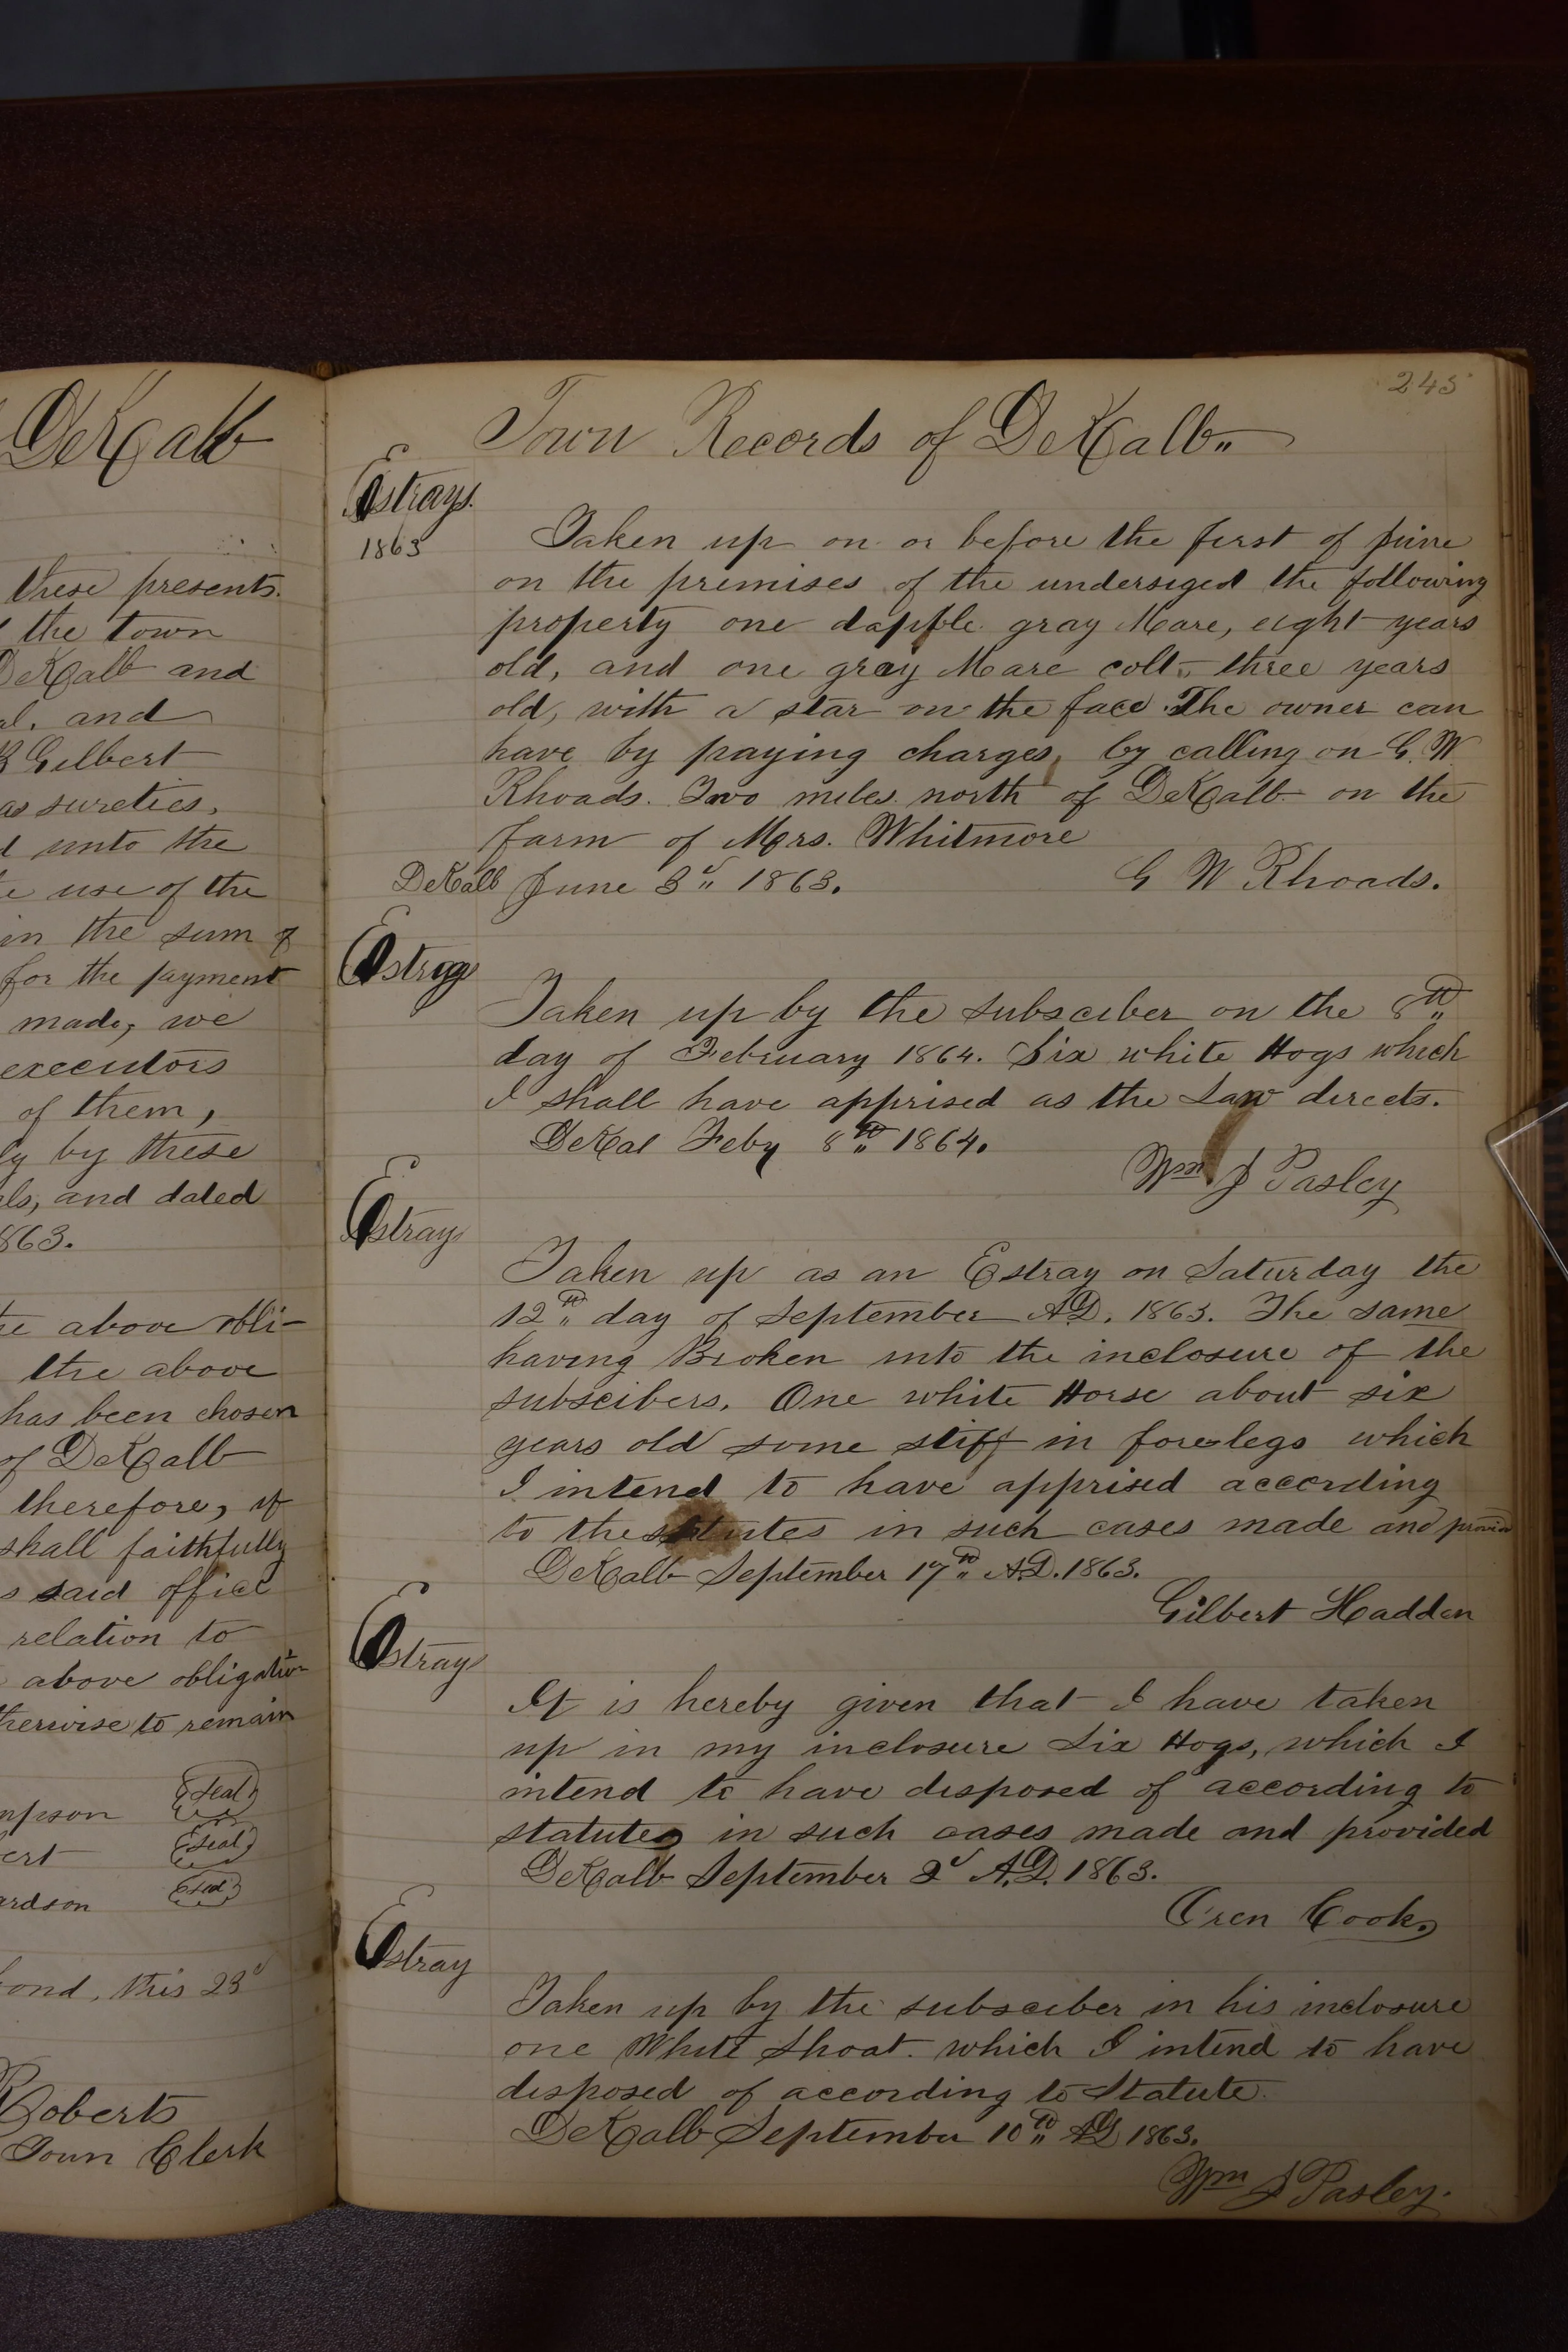 DeKalb
these presents.
the town
DeKalb and
al. and
B Gilbert
as sureties.
unto the
use of the
in the sum of
for the payment
made, we
executors
of them,
by these
and dated
1863.
above obli-
the above
has been chosen
of DeKalb
therefore, if
shall faithfully
said office
relation to
above obligation
therwise to remain
mpson (Seal)
ert (Seal)
ardson (Seal)
ond, this 23d
Roberts
Town Clerk
245
Town Records of DeKalb"
Estrays.
1863
Taken up on or before the first of June
on the premises of the undersiged the following
property one dapple gray Mare, eight years
old, and one gray Mare colt " three years
old, with a star on the face. The owner can
have by paying charges, by calling on G. W.
Rhoads. Two miles north of DeKalb on the
farm of Mrs. Whitmore
DeKalb June 3d" 1863. G W Rhoads.
Estray
Taken up by the subsciber on the 8th"
day of February 1864. Six white Hogs which
I shall have apprised as the Law directs.
DeKal Feby 8th" 1864.
Wm J Pasley
Estray
Taken up as an Estray on Saturday the
12th" day of September A.D. 1863. The same
having Broken into the inclosure of the
subscibers. One white Horse about six
years old some stiff in fore legs which
I intend to have apprised according
to the statutes in such cases made and provid
DeKalb September 17th" A.D. 1863.
Gilbert Hadden
Estray
It is hereby given that I have taken
up in my inclosure Six Hogs, which I
intend to have disposed of according to
statutes in such cases made and provided
DeKalb September 2d A.D. 1863.
Oren Cook.
Estray
Taken up by the subsciber in his inclosure
one White Shoat. which I intend to have
disposed of according to Statute.
DeKalb September 10th" AD 1863.
Wm J Pasley.